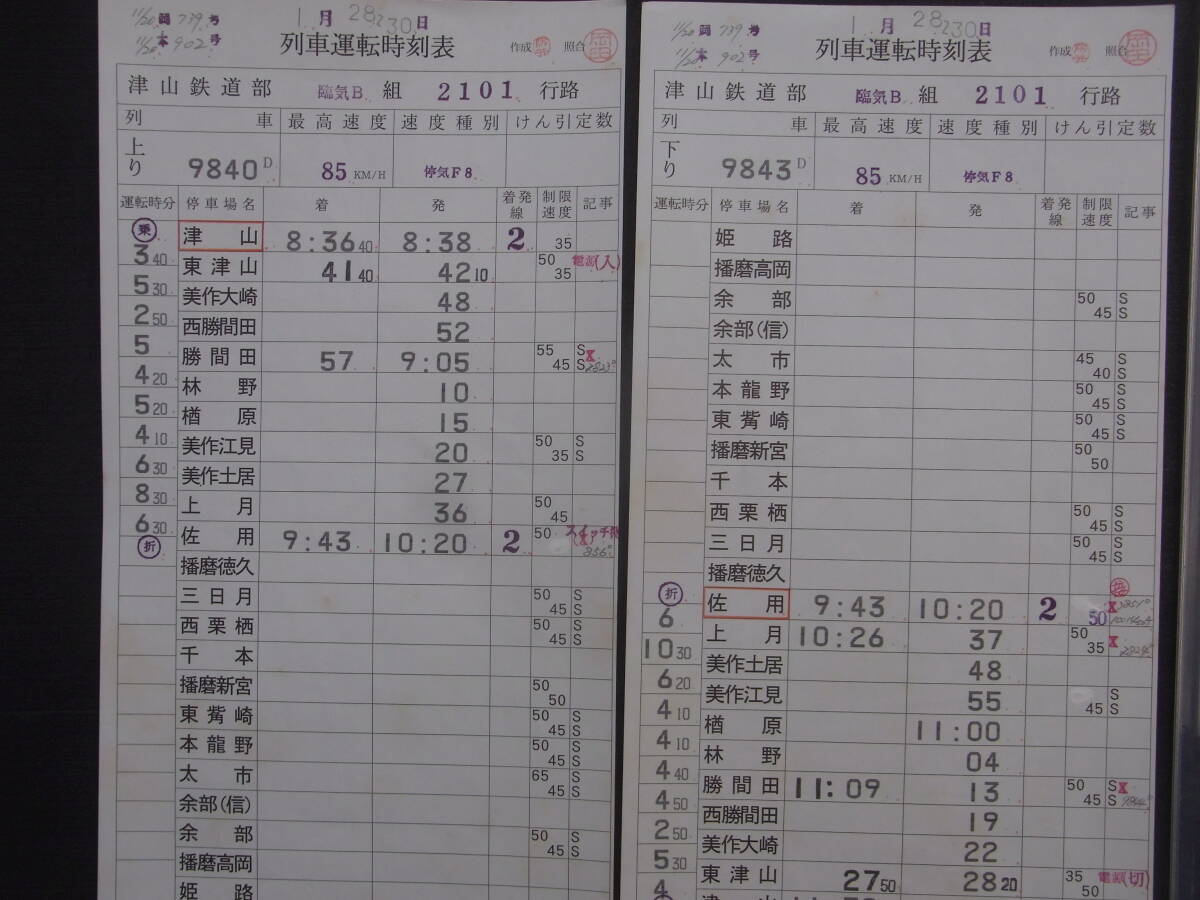 11/20 岡 739 号
11/20 本 902 号
1月28, 30日
列車運転時刻表
作成
照合
津山鉄道部 臨気B 組 2101 行路
列車 最高速度 速度種別 けん引定数
上り 9840D 85 KM/H 停気F8
運転時分 停車場名 着 発 着発線 制限速度 記事
乗 津山 8:36 40 8:38 2 35
3 40 東津山 41 40 42 10 50 35 電源(入)
5 30 美作大崎 48
2 50 西勝間田 52
5 勝間田 57 9:05 55 45 S S X
4 20 林野 10
5 20 楢原 15
4 10 美作江見 20 50 35 S S
6 30 美作土居 27
8 30 上月 36 50 45
6 30 佐用 9:43 10:20 2 50
折 播磨徳久
三日月 50 45 S S
西栗栖 50 45 S S
千本
播磨新宮 50 50
東觜崎 50 45 S S
本龍野 50 45 S S
太市 65 45 S S
余部(信)
余部 50 45 S S
播磨高岡
姫路
11/20 岡 739 号
11/20 本 902 号
1月28, 30日
列車運転時刻表
作成
照合
津山鉄道部 臨気B 組 2101 行路
列車 最高速度 速度種別 けん引定数
下り 9843D 85 KM/H 停気F8
運転時分 停車場名 着 発 着発線 制限速度 記事
姫路
播磨高岡
余部 50 45 S S
余部(信)
太市 45 40 S S
本龍野 50 45 S S
東觜崎 50 45 S S
播磨新宮 50 50
千本
西栗栖 50 45 S S
三日月 50 45 S S
播磨徳久
折 佐用 9:43 10:20 2 50 X
6 上月 10:26 37 50 35 X
10 30 美作土居 48
6 20 美作江見 55 45 S S
4 10 楢原 11:00
4 10 林野 04
4 40 勝間田 11:09 13 50 45 S S X
4 50 西勝間田 19
2 50 美作大崎 22
5 30 東津山 27 50 28 20 35 50 電源(切)
4 津山